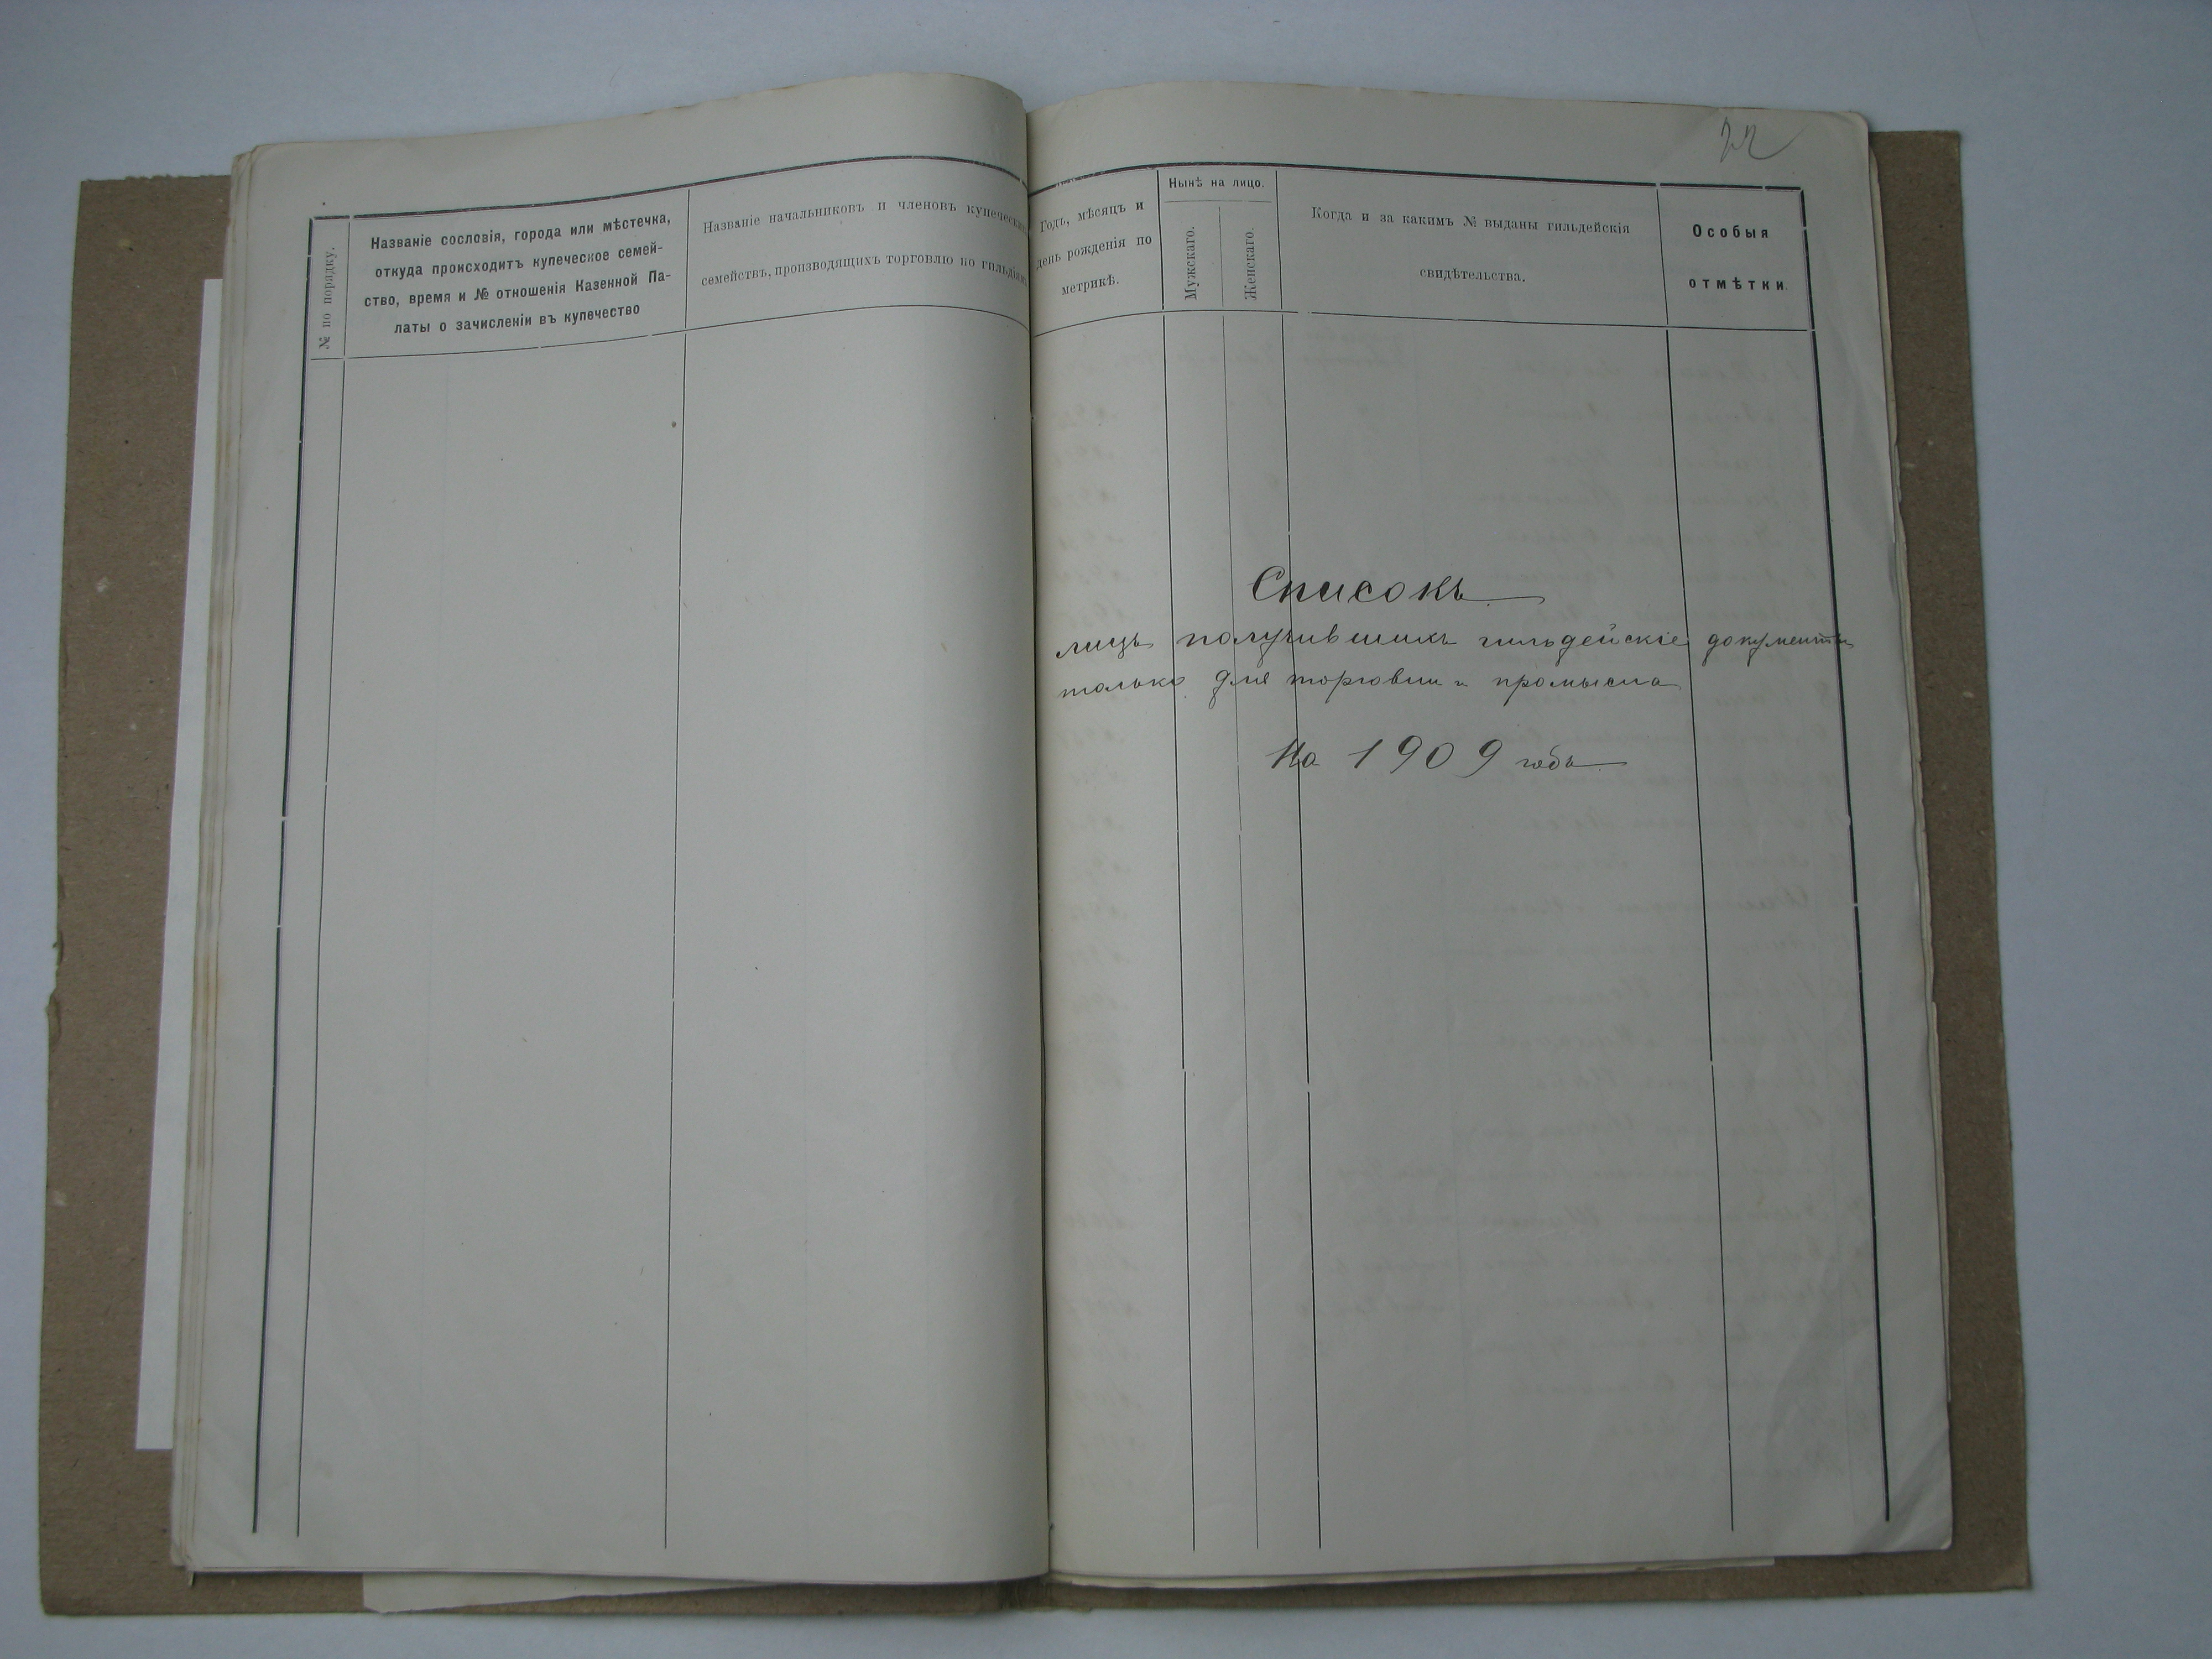 22
№ по порядку.
Названіе сословія, города или мѣстечка,
откуда происходитъ купеческое семей-
ство, время и № отношенія Казенной Па-
латы о зачисленіи въ купечество
Названіе начальниковъ и членовъ купеческихъ
семействъ, производящихъ торговлю по гильдіямъ
Годъ, мѣсяцъ и
день рожденія по
метрикѣ.
Нынѣ на лицо.
Мужскаго.
Женскаго.
Когда и за какимъ № выданы гильдейскія
свидѣтельства.
Особыя
отмѣтки.
Списокъ
лицъ получившихъ гильдейскіе документы
только для торговли и промысла
На 1909 годъ